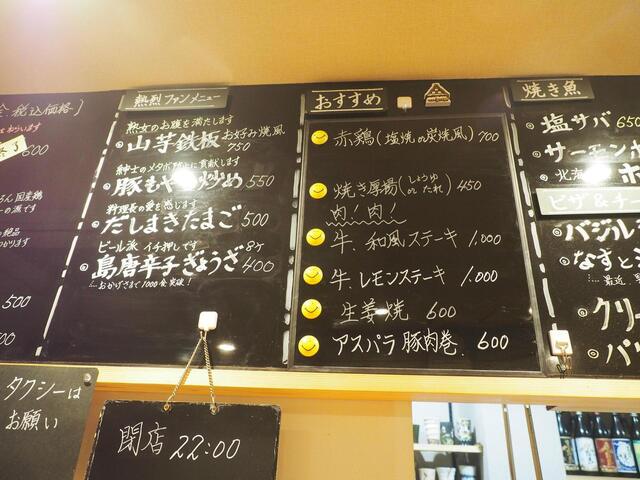 税込価格]
600
500
熱烈 ファンメニュー
熟女のお腹を満たします
山芋鉄板 お好み焼風
750
紳士のメタボ防止に貢献します
豚もやし炒め 550
料理長の愛を感じます
だしまきたまご 500
ビール派 イチ押しです
島唐辛子ぎょうざ 8ヶ 400
おかげさまで1000食突破!
おすすめ
赤鶏(塩焼 or 炭焼風) 700
焼き厚揚(しょうゆ or たれ) 450
肉!肉!
牛、和風ステーキ 1,000
牛、レモンステーキ 1,000
生姜焼 600
アスパラ豚肉巻 600
焼き魚
塩サバ 650
サーモン
北海
ピザ&チ
バジル
なすと
クリー
タクシーは
お願い
閉店 22:00